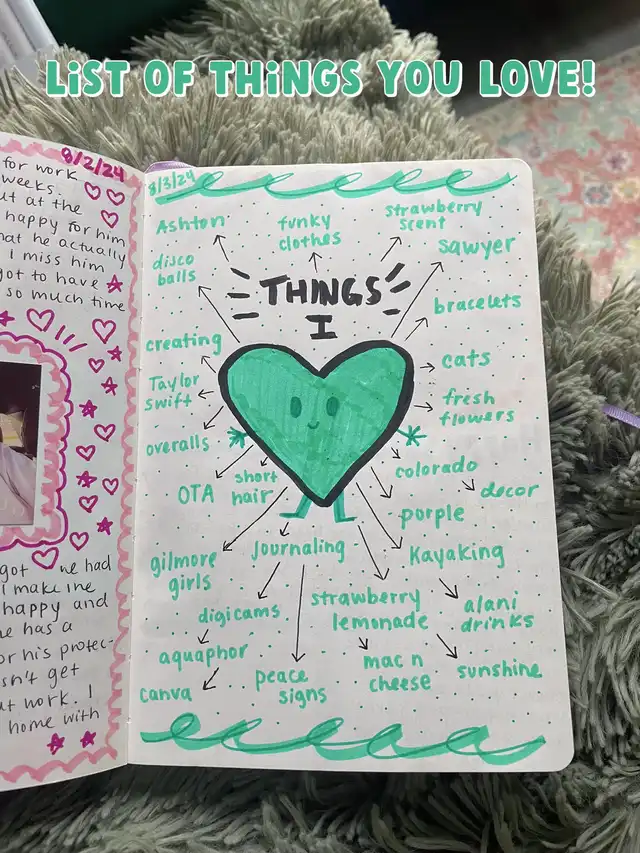 LiST OF THiNGS YOU LOVE!
8/2/24
for work
weeks.
at the
happy for him
he actually
I miss him
got to have
so much time
got we had
I make me
happy and
has a
or his protec-
get
at work. I
home with
8/3/24
Ashton
funky
clothes
strawberry
scent
sawyer
disco
balls
THINGS
I
bracelets
creating
cats
Taylor
swift
fresh
flowers
overalls
colorado
OTA
short
hair
decor
porple
gilmore
girls
journaling
Kayaking
digicams
strawberry
lemonade
alani
drinks
aquaphor
mac n
cheese
sunshine
canva
peace
signs